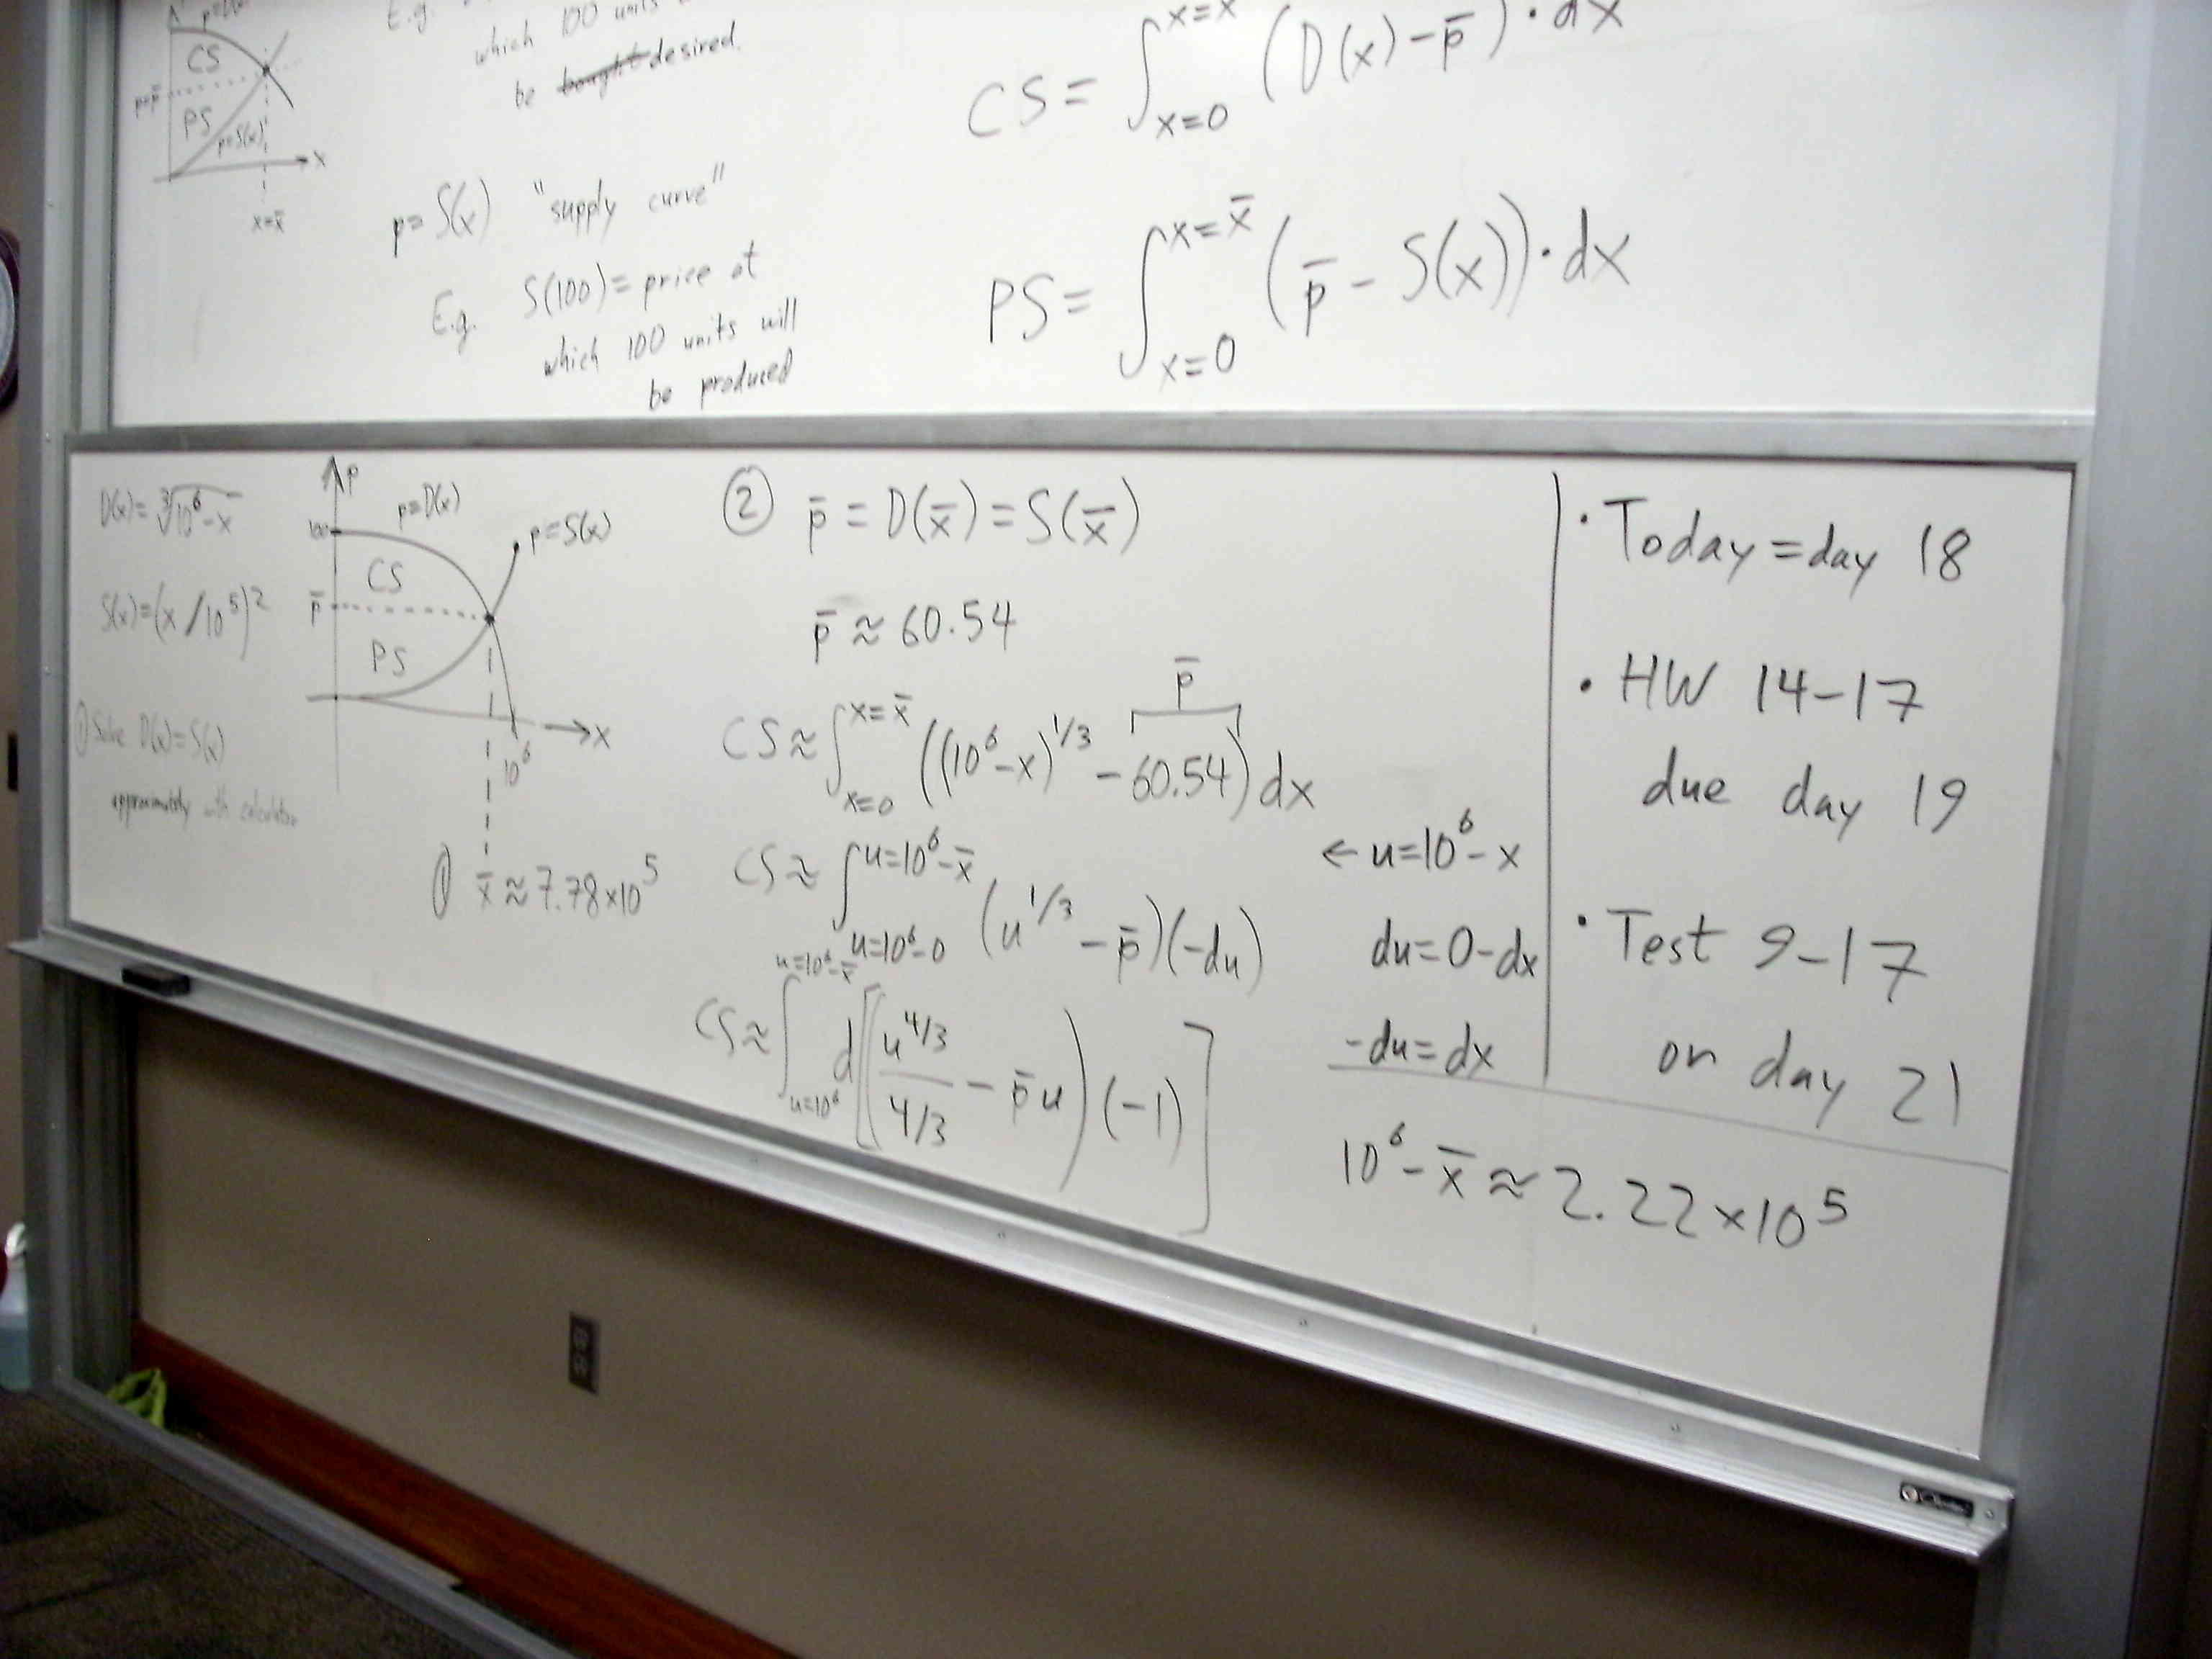 p=D(x)
CS
p=p̄
PS
p=S(x)
x
x=x̄
E.g.
which 100 units
be bought desired.
p=S(x) "supply curve"
E.g. S(100)=price at
which 100 units will
be produced
CS=∫_{x=0}^{x=x̄} (D(x)-p̄)·dx
PS=∫_{x=0}^{x=x̄} (p̄-S(x))·dx
D(x)=∛(10⁶-x)
S(x)=(x/10⁵)²
① Solve D(x)=S(x)
approximately with calculator
p
p=D(x)
100
p=S(x)
CS
p̄
PS
x
10⁶
① x̄≈7.78×10⁵
② p̄=D(x̄)=S(x̄)
p̄≈60.54
p̄
CS≈∫_{x=0}^{x=x̄} ((10⁶-x)^{1/3}-60.54)dx
CS≈∫_{u=10⁶-0}^{u=10⁶-x̄} (u^{1/3}-p̄)(-du)
CS≈∫_{u=10⁶}^{u=10⁶-x̄} d[(u^{4/3}/(4/3)-p̄u)(-1)]
←u=10⁶-x
du=0-dx
-du=dx
10⁶-x̄≈2.22×10⁵
• Today=day 18
• HW 14-17
due day 19
• Test 9-17
on day 21